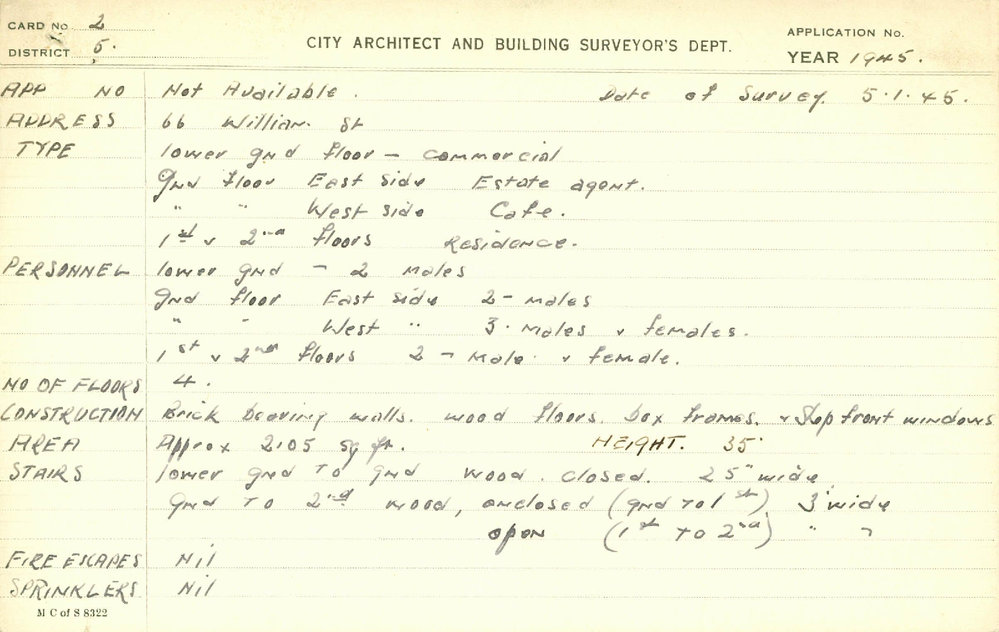 CARD No 2
DISTRICT 5.
CITY ARCHITECT AND BUILDING SURVEYOR'S DEPT.
APPLICATION No.
YEAR 1945.
APP NO Not Available. Date of Survey 5.1.45.
ADDRESS 66 William St
TYPE lower gnd floor – commercial
Gnd floor East side Estate agent.
" " West side Cafe.
1st & 2nd floors Residence.
PERSONNEL lower gnd – 2 males
gnd floor East side 2 – males
" " West " 3. males & females.
1st & 2nd floors 2 – male & female.
NO OF FLOORS 4.
CONSTRUCTION Brick bearing walls. wood floors. box frames. & shop front windows
AREA Approx 2105 sq ft. HEIGHT. 35'
STAIRS lower gnd to gnd wood. closed. 25" wide
gnd to 2nd wood, enclosed (gnd to 1st) 3' wide
open (1st to 2nd) " "
FIRE ESCAPES Nil
SPRINKLERS Nil
M C of S 8322